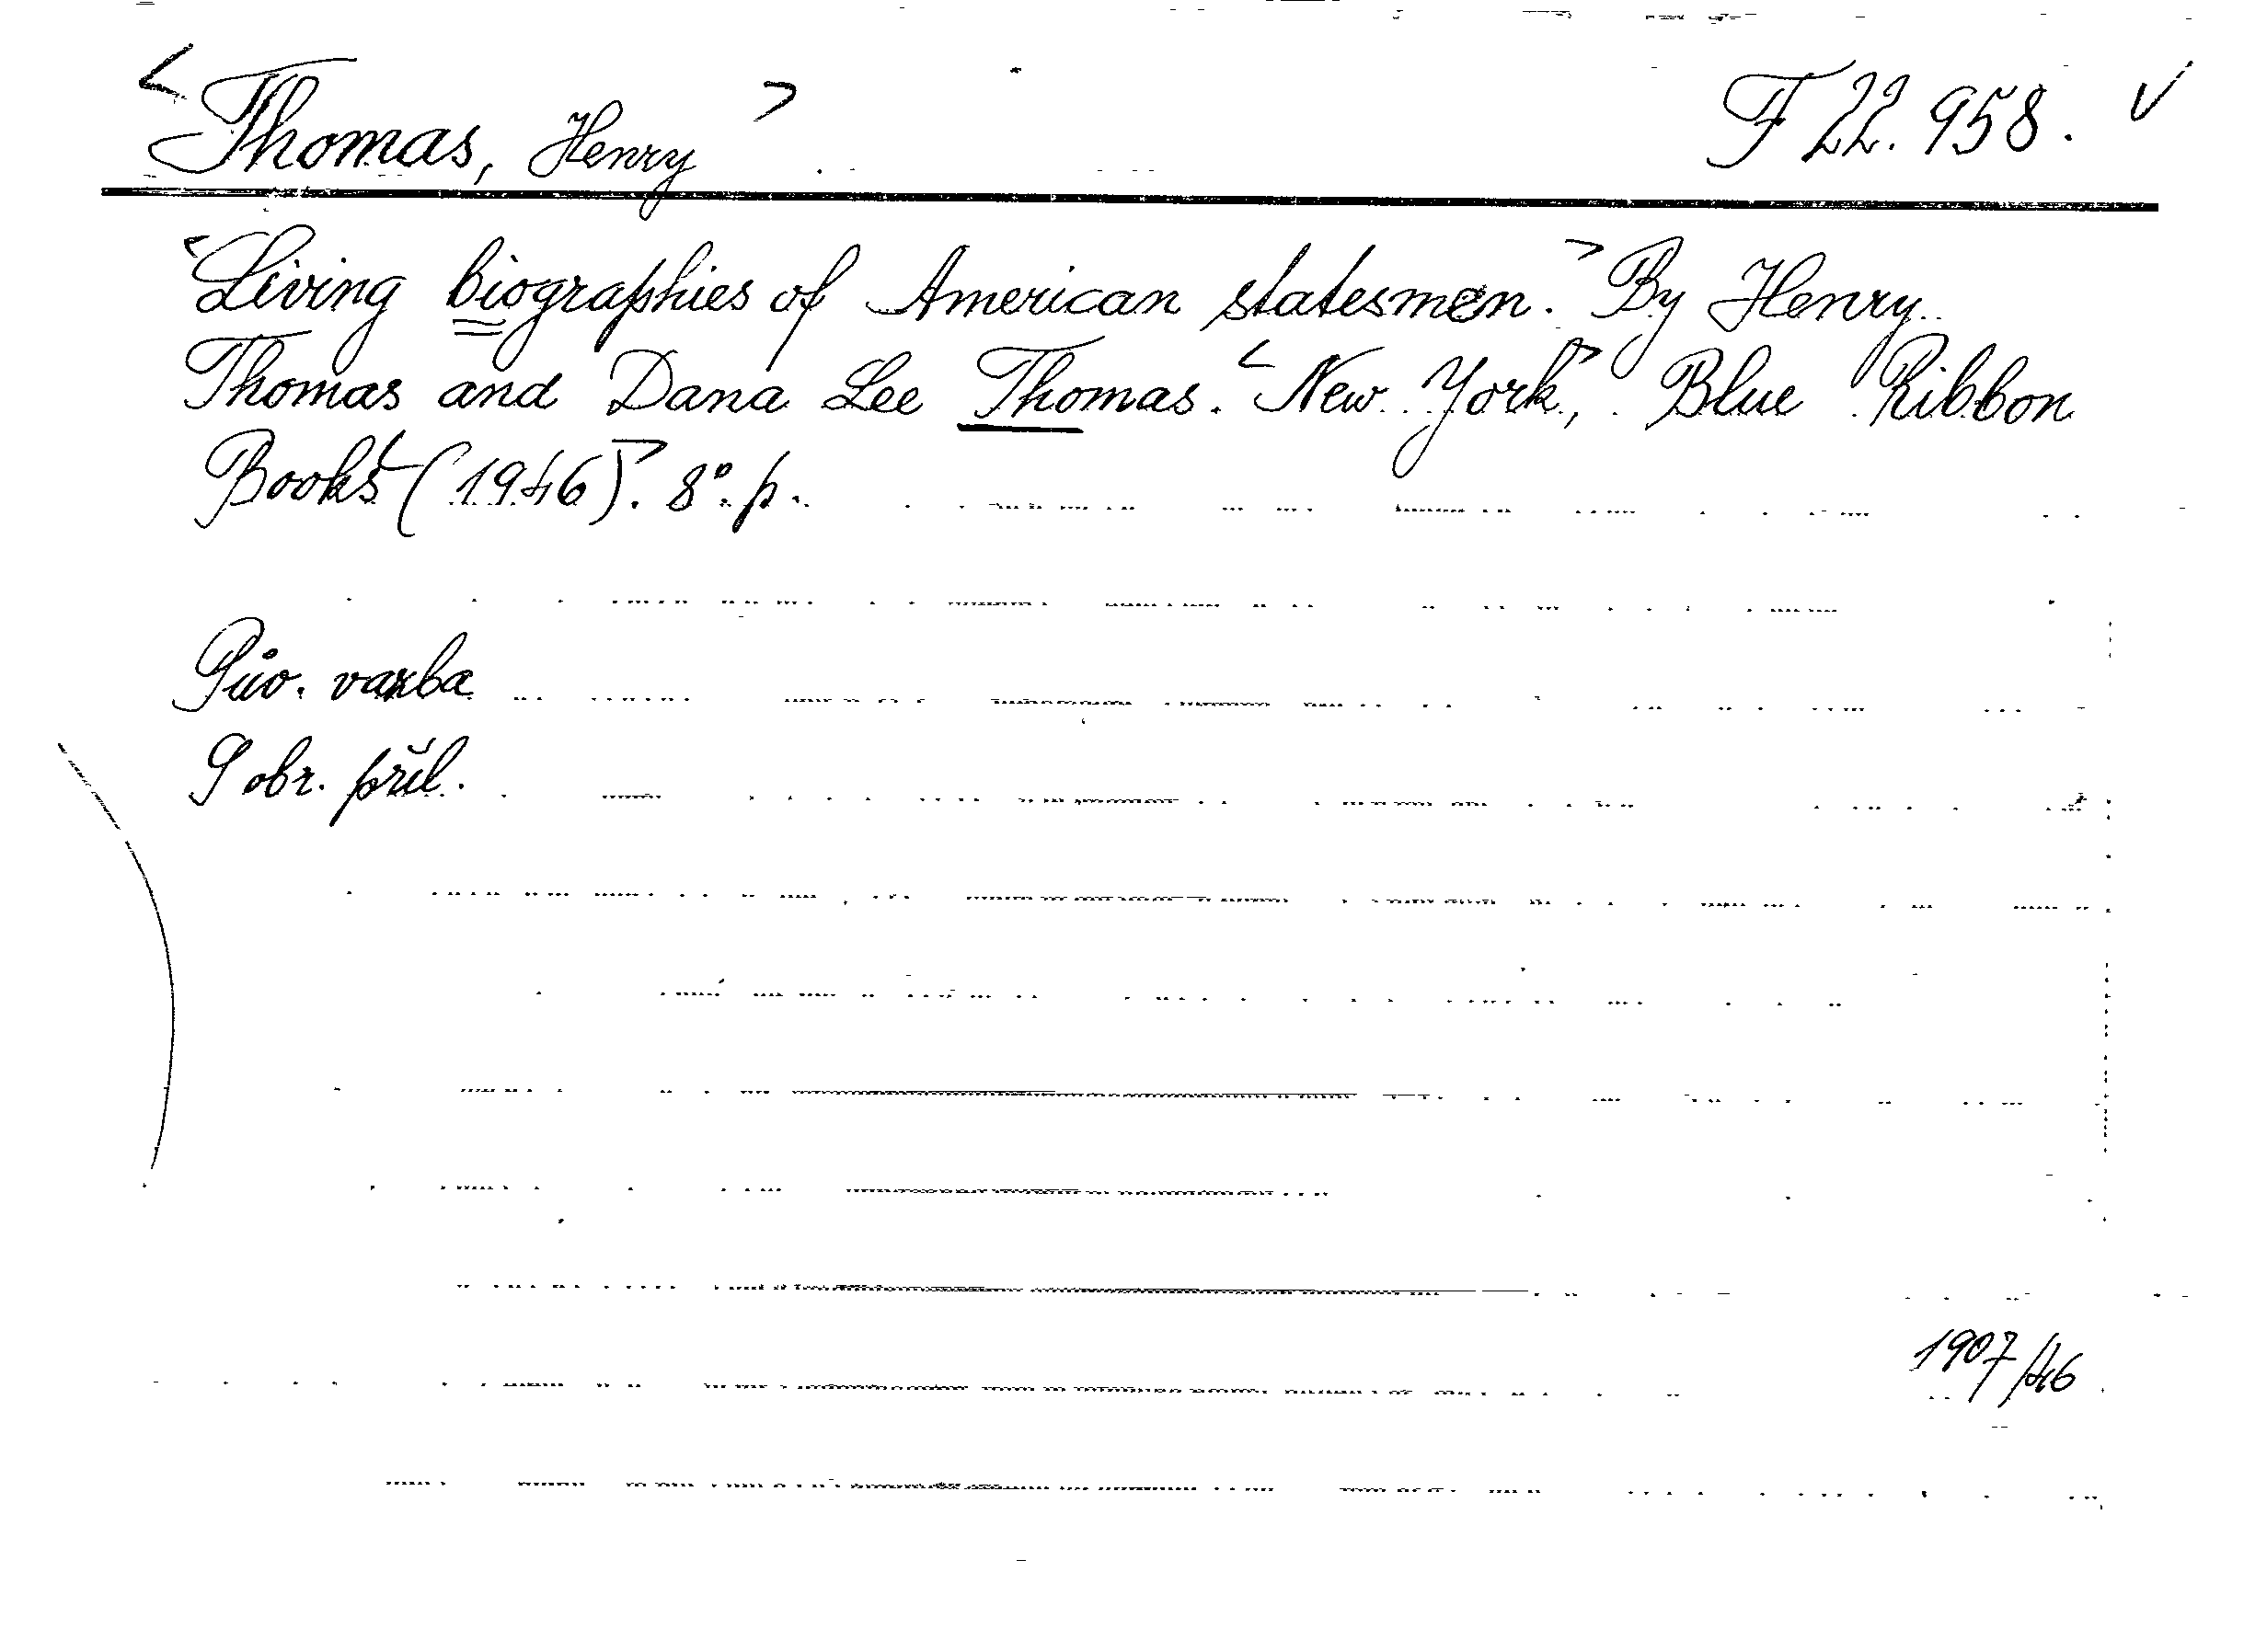 <Thomas, Henry> F 22.958. ✓
<Living biographies of American statesmen.> By Henry
Thomas and Dana Lee Thomas. <New York,> Blue Ribbon
Books <(1946)>. 8°. p.
Pův. vazba
9 obr. příl.
1907/46